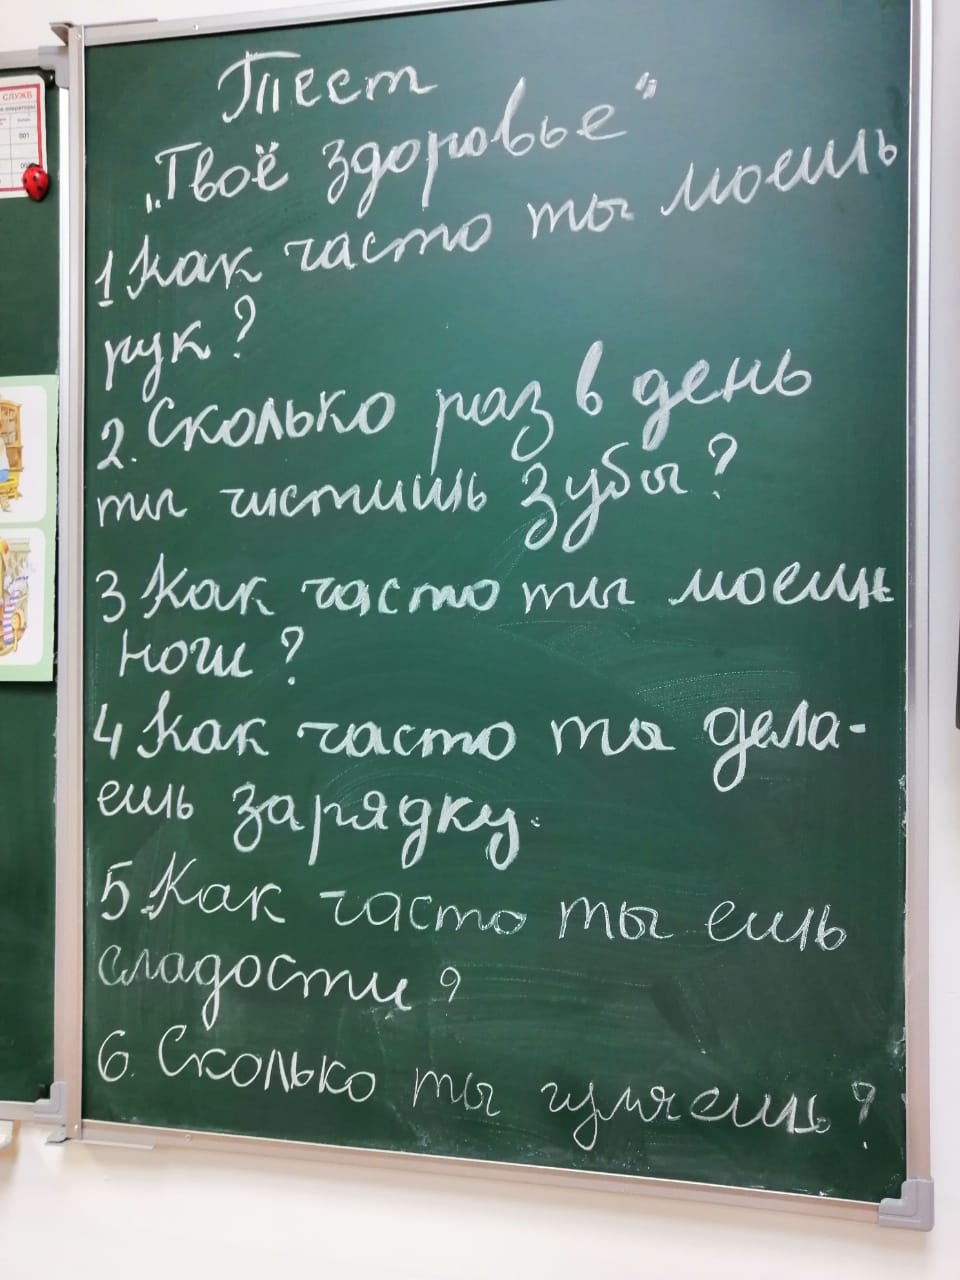 СЛУЖБ
001
Тест
„Твоё здоровье“
1 Как часто ты моешь
рук?
2. Сколько раз в день
ты чистишь зубы?
3 Как часто ты моешь
ноги?
4 Как часто ты дела-
ешь зарядку.
5. Как часто ты ешь
сладости?
6. Сколько ты гуляешь?